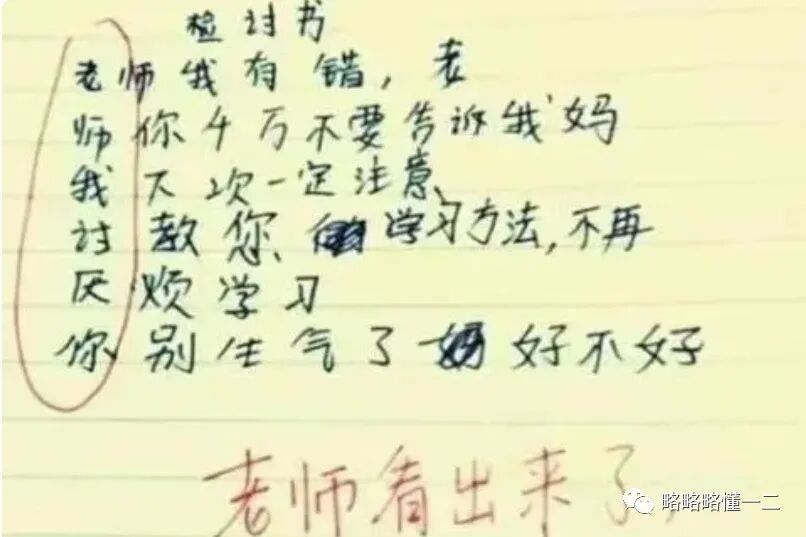 检讨书
老师我有错，老
师你千万不要告诉我妈
我下次一定注意、
讨教您、学习方法,不再
厌烦学习
你别生气了 好不好
老师看出来了.
略略略懂一二